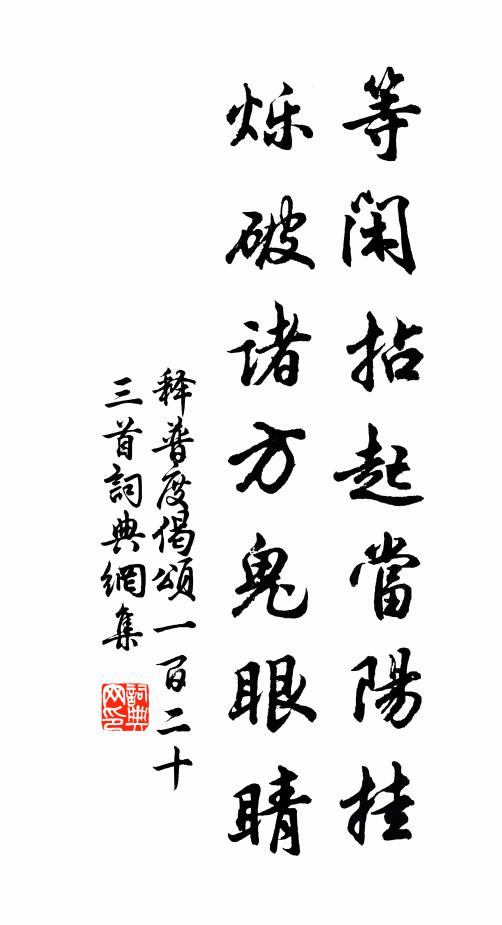 等闲拈起當陽挂
烁破诸方鬼眼睛
释普度偈頌一百二十
三首詞典網集
詞典网印